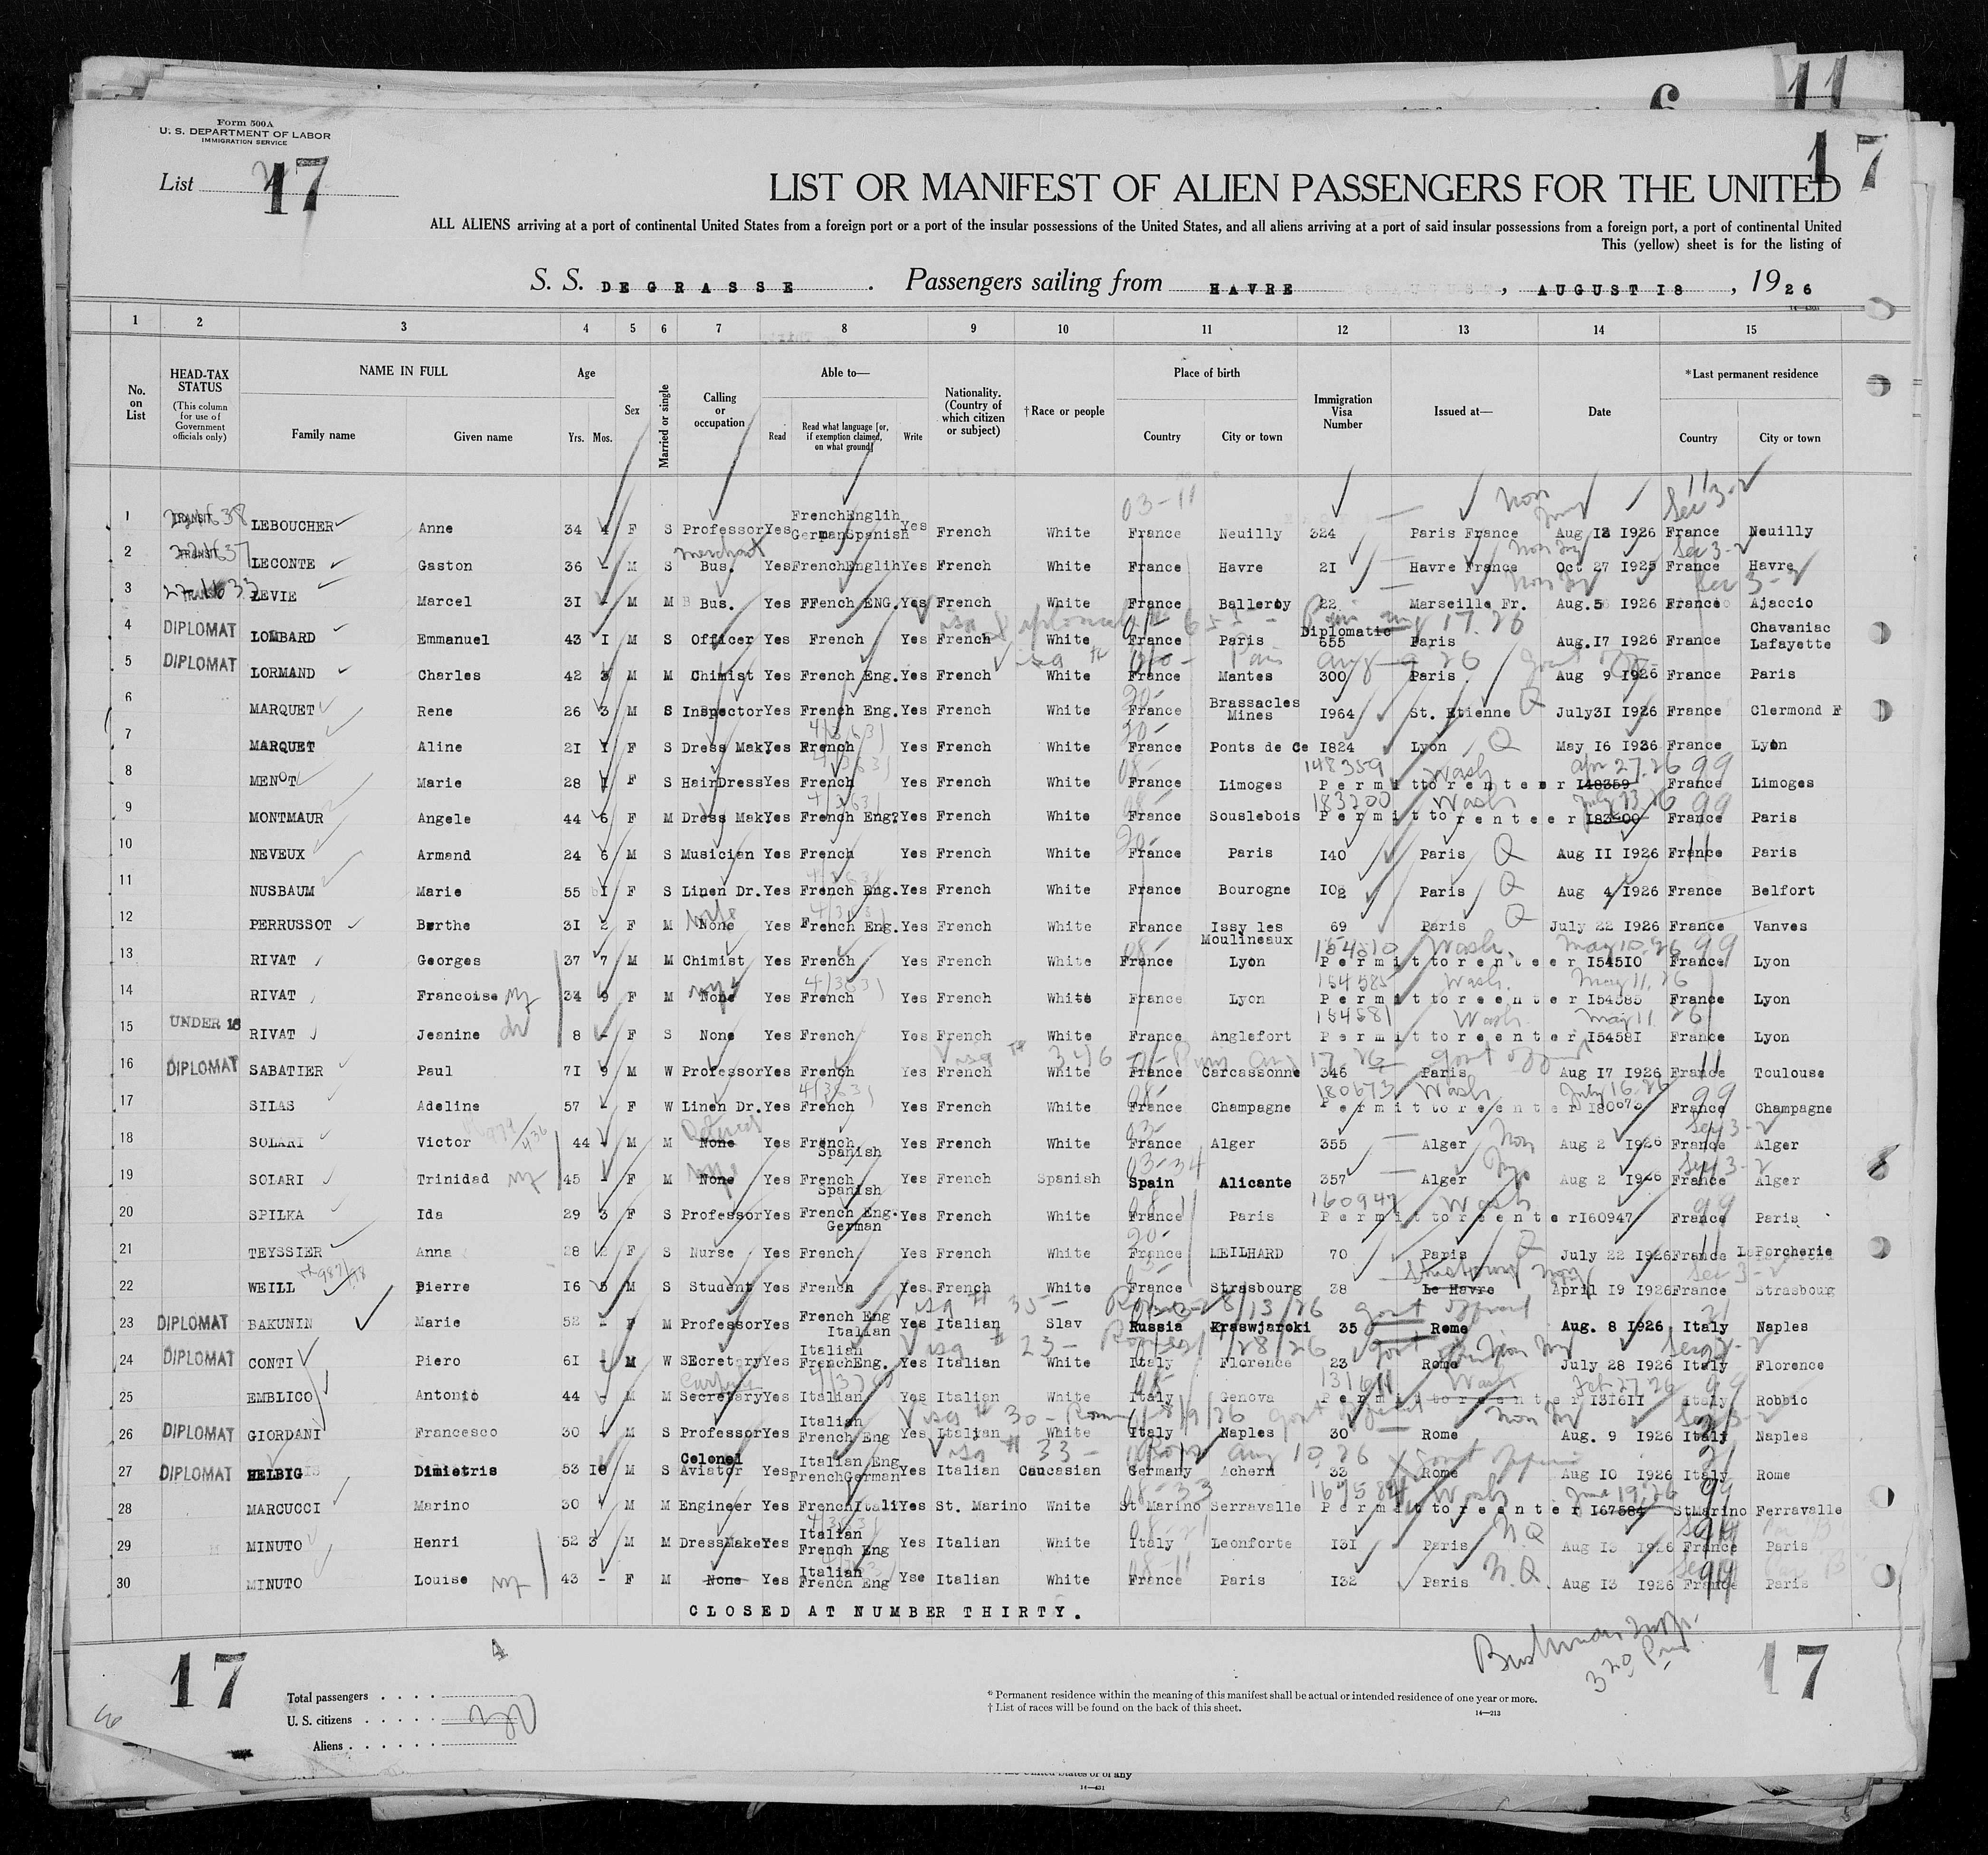 6
11
17
Form 500A
U. S. DEPARTMENT OF LABOR
IMMIGRATION SERVICE
List 17
LIST OR MANIFEST OF ALIEN PASSENGERS FOR THE UNITED
ALL ALIENS arriving at a port of continental United States from a foreign port or a port of the insular possessions of the United States, and all aliens arriving at a port of said insular possessions from a foreign port, a port of continental United
This (yellow) sheet is for the listing of
S. S. DE GRASSE . Passengers sailing from HAVRE , AUGUST I8 , 1926
1 2 3 4 5 6 7 8 9 10 11 12 13 14 15
No. on List
HEAD-TAX STATUS (This column for use of Government officials only)
NAME IN FULL Family name Given name
Age Yrs. Mos.
Sex
Married or single
Calling or occupation
Able to— Read Read what language [or, if exemption claimed, on what ground] Write
Nationality. (Country of which citizen or subject)
†Race or people
Place of birth Country City or town
Immigration Visa Number
Issued at—
Date
*Last permanent residence Country City or town
1 TRANSIT LEBOUCHER Anne 34 4 F S Professor Yes FrenchEnglih GermanSpanish Yes French White France Neuilly 324 Paris France Aug I8 I926 France Neuilly
2 TRANSIT LECONTE Gaston 36 - M S Merchant Bus. Yes FrenchEnglih Yes French White France Havre 2I Havre France Oct 27 I925 France Havre
3 TRANSIT LEVIE Marcel 3I - M M Bus. Yes FFench ENG. Yes French White France Balleroy 22 Marseille Fr. Aug.5 I926 France Ajaccio
4 DIPLOMAT LOMBARD Emmanuel 43 I M S Officer Yes French Yes French White France Paris Diplomatic 655 Paris Aug.I7 I926 France Chavaniac Lafayette
5 DIPLOMAT LORMAND Charles 42 3 M M Chimist Yes French Eng. Yes French White France Mantes 300 Paris Aug 9 I926 France Paris
6 MARQUET Rene 26 3 M S Inspector Yes French Eng. Yes French White France Brassacles Mines I964 St. Etienne Q July3I I926 France Clermond F
7 MARQUET Aline 2I I F S Dress Mak. Yes French Yes French White France Ponts de Ce I824 Lyon Q May I6 I926 France Lyon
8 MENOT Marie 28 I F S HairDress Yes French Yes French White France Limoges 148359 Permit to renteer I48359 Wash Apr 27.26 99 France Limoges
9 MONTMAUR Angele 44 6 F M Dress Mak. Yes French Eng? Yes French White France Souslebois 183200 Permit to renteer I83200 Wash July 23 26 99 France Paris
10 NEVEUX Armand 24 6 M S Musician Yes French Yes French White France Paris I40 Paris Q Aug II I926 France Paris
11 NUSBAUM Marie 55 I F S Linen Dr. Yes French Eng. Yes French White France Bourogne I02 Paris Q Aug 4 I926 France Belfort
12 PERRUSSOT Berthe 3I 2 F M Wife None Yes French Eng. Yes French White France Issy les Moulineaux 69 Paris Q July 22 I926 France Vanves
13 RIVAT Georges 37 7 M M Chimist Yes French Yes French White France Lyon 154510 Permit to renteer I545I0 Wash. May 10.26 99 France Lyon
14 RIVAT Francoise 34 9 F M None Yes French Yes French White France Lyon 154585 Permit to reenter I54585 Wash. May 11.26 France Lyon
15 UNDER 16 RIVAT Jeanine 8 - F S None Yes French Yes French White France Anglefort 154581 Permit to reenter I5458I Wash May 11 26 France Lyon
16 DIPLOMAT SABATIER Paul 7I 9 M W Professor Yes French Yes French White France Carcassonne 346 Paris Aug I7 I926 France Toulouse
17 SILAS Adeline 57 - F W Linen Dr. Yes French Yes French White France Champagne 180673 Permit to reenter I80673 Wash July 16.26 99 France Champagne
18 SOLARI Victor 44 - M M None Yes French Spanish Yes French White France Alger 355 Alger Aug 2 I926 France Alger
19 SOLARI Trinidad 45 - F M None Yes French Spanish Yes French Spanish Spain Alicante 357 Alger Aug 2 I926 France Alger
20 SPILKA Ida 29 3 F S Professor Yes French Eng. German Yes French White France Paris 160947 Permit to reenter I60947 Wash 99 France Paris
21 TEYSSIER Anna 28 F S Nurse Yes French Yes French White France MEILHARD 70 Paris Q July 22 I926 France La Porcherie
22 WEILL Pierre I6 5 M S Student Yes French Yes French White France Strasbourg 38 Le Havre April I9 I926 France Strasbourg
23 DIPLOMAT BAKUNIN Marie 52 - F M Professor Yes French Eng Italian Yes Italian Slav Russia Kraswjarcki 35 Rome Aug. 8 I926 Italy Naples
24 DIPLOMAT CONTI Piero 6I - M W SEcretary Yes Italian FrenchEng. Yes Italian White Italy Florence 23 Rome July 28 I926 Italy Florence
25 EMBLICO Antonio 44 - M M Secretary Yes Italian Yes Italian White Italy Genova 131611 Permit to reenter I3I6II Wash Feb 27 26 99 Italy Robbio
26 DIPLOMAT GIORDANI Francesco 30 - M S Professor Yes Italian French Eng Yes Italian White Italy Naples 30 Rome Aug. 9 I926 Italy Naples
27 DIPLOMAT HELBIG Dimietris 53 I0 M S Colonel Aviator Yes Italian Eng FrenchGerman Yes Italian Caucasian Germany Achern 33 Rome Aug I0 I926 Italy Rome
28 MARCUCCI Marino 30 M M Engineer Yes FrenchItali Yes St. Marino White St Marino Serravalle 167584 Permit to reenter I67584 Wash June 19.26 99 StMarino Ferravalle
29 MINUTO Henri 52 3 M M DressMake Yes Italian French Eng Yes Italian White Italy Leonforte I3I Paris N.Q Aug I3 I926 France Paris
30 MINUTO Louise 43 - F M None Yes Italian French Eng Yse Italian White France Paris I32 Paris N.Q. Aug I3 I926 France Paris
CLOSED AT NUMBER THIRTY.
17
4
17
Total passengers . . . .
U. S. citizens . . . . .
Aliens . . . . . .
* Permanent residence within the meaning of this manifest shall be actual or intended residence of one year or more.
† List of races will be found on the back of this sheet.
14—213